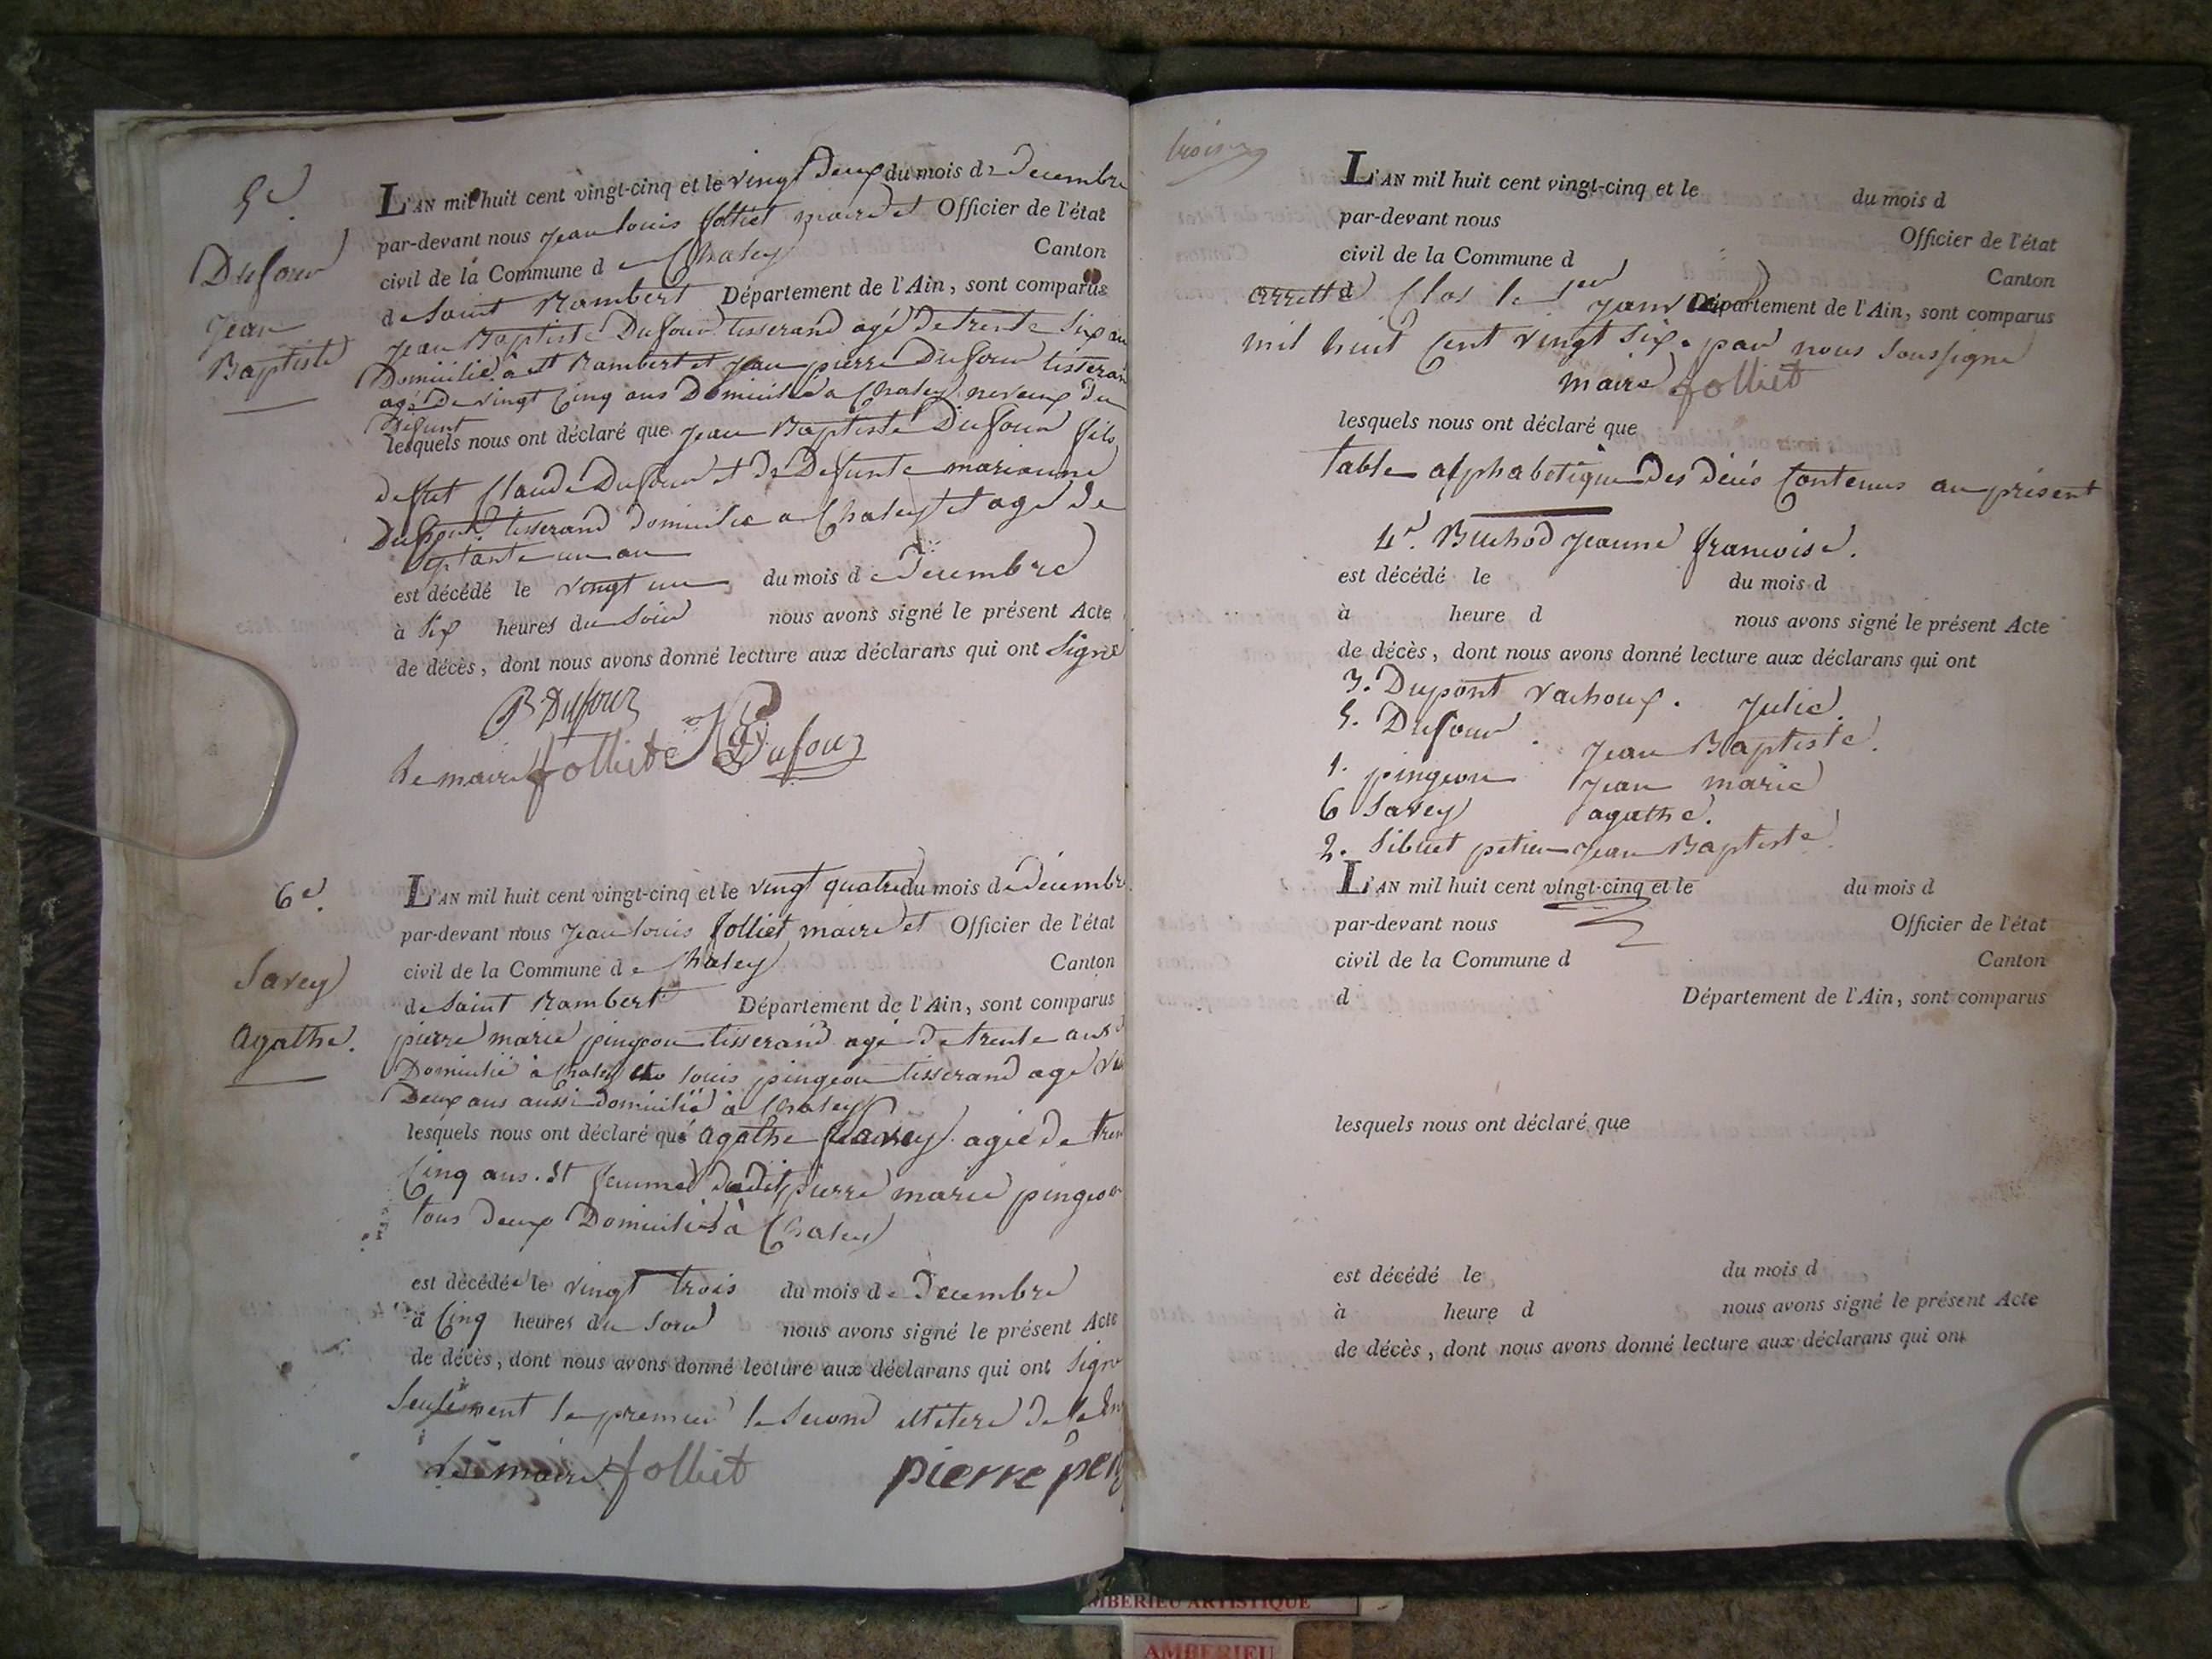 5e.
Dufour
Jean
Baptiste
L'AN mil huit cent vingt-cinq et le vingt deux du mois de Decembre
par-devant nous jean louis folliet maire et Officier de l'état
civil de la Commune de Chaley Canton
de Saint Rambert Département de l'Ain, sont comparus
jean Baptiste Dufour tisserand agé de trente six an
Domicilié a st Rambert et jean pierre Dufour tisseran
agé de vingt cinq ans Domicilié a Chaley neveux du
Defunt
lesquels nous ont déclaré que jean Baptiste Dufour fils
de feu Claude Dufour et de Defunte marianne
tisserand domicilié a Chaley et agé de
septante un an
est décédé le vingt un du mois de Decembre
à six heures du soir nous avons signé le présent Acte
de décès, dont nous avons donné lecture aux déclarans qui ont signé
B Dufour
le maire folliet Dufour
6e.
Savey
agathe.
L'AN mil huit cent vingt-cinq et le vingt quatre du mois de decembr
par-devant nous jean louis folliet maire et Officier de l'état
civil de la Commune de Chaley Canton
de Saint Rambert Département de l'Ain, sont comparus
pierre marie pingeon tisserand agé de trente ans
Domicilié à Chaley louis pingeon tisserand agé
Deux ans aussi domicilié à Chaley
lesquels nous ont déclaré que agathe Savey agée de tren
cinq ans. et femme dudit pierre marie pingeon
tous deux Domiciliés à Chaley
est décédée le vingt trois du mois de Decembre
à cinq heures du soir nous avons signé le présent Acte
de décès, dont nous avons donné lecture aux déclarans qui ont signé
seulement le premier le second illitere de
le maire folliet pierre pen
L'AN mil huit cent vingt-cinq et le du mois d
par-devant nous Officier de l'état
civil de la Commune d Canton
d Département de l'Ain, sont comparus
arretté Clos le 1er janvier
mil huit cent vingt six. par nous soussigné
maire folliet
lesquels nous ont déclaré que
table alphabetique des décés contenus au présent
4e. Buchod jeanne francoise.
est décédé le du mois d
à heure d nous avons signé le présent Acte
de décès, dont nous avons donné lecture aux déclarans qui ont
3. Dupont vachoux. julie.
5. Dufour. jean Baptiste.
1. pingeon jean marie
6 Savey agathe.
2. Sibuet jean Baptiste.
L'AN mil huit cent vingt-cinq et le du mois d
par-devant nous Officier de l'état
civil de la Commune d Canton
d Département de l'Ain, sont comparus
lesquels nous ont déclaré que
est décédé le du mois d
à heure d nous avons signé le présent Acte
de décès, dont nous avons donné lecture aux déclarans qui ont
MBERIEU ARTISTIQUE
AMBERIEU